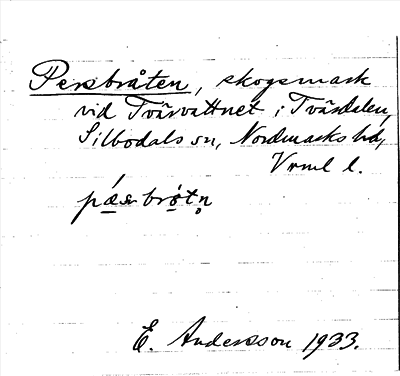 Persbråten, skogsmark
vid Tvärvattnet i Tvärdalen,
Silbodals sn, Nordmarks hd,
Vrml l.
pǽsbrø̀tn̥
E. Andersson 1933.